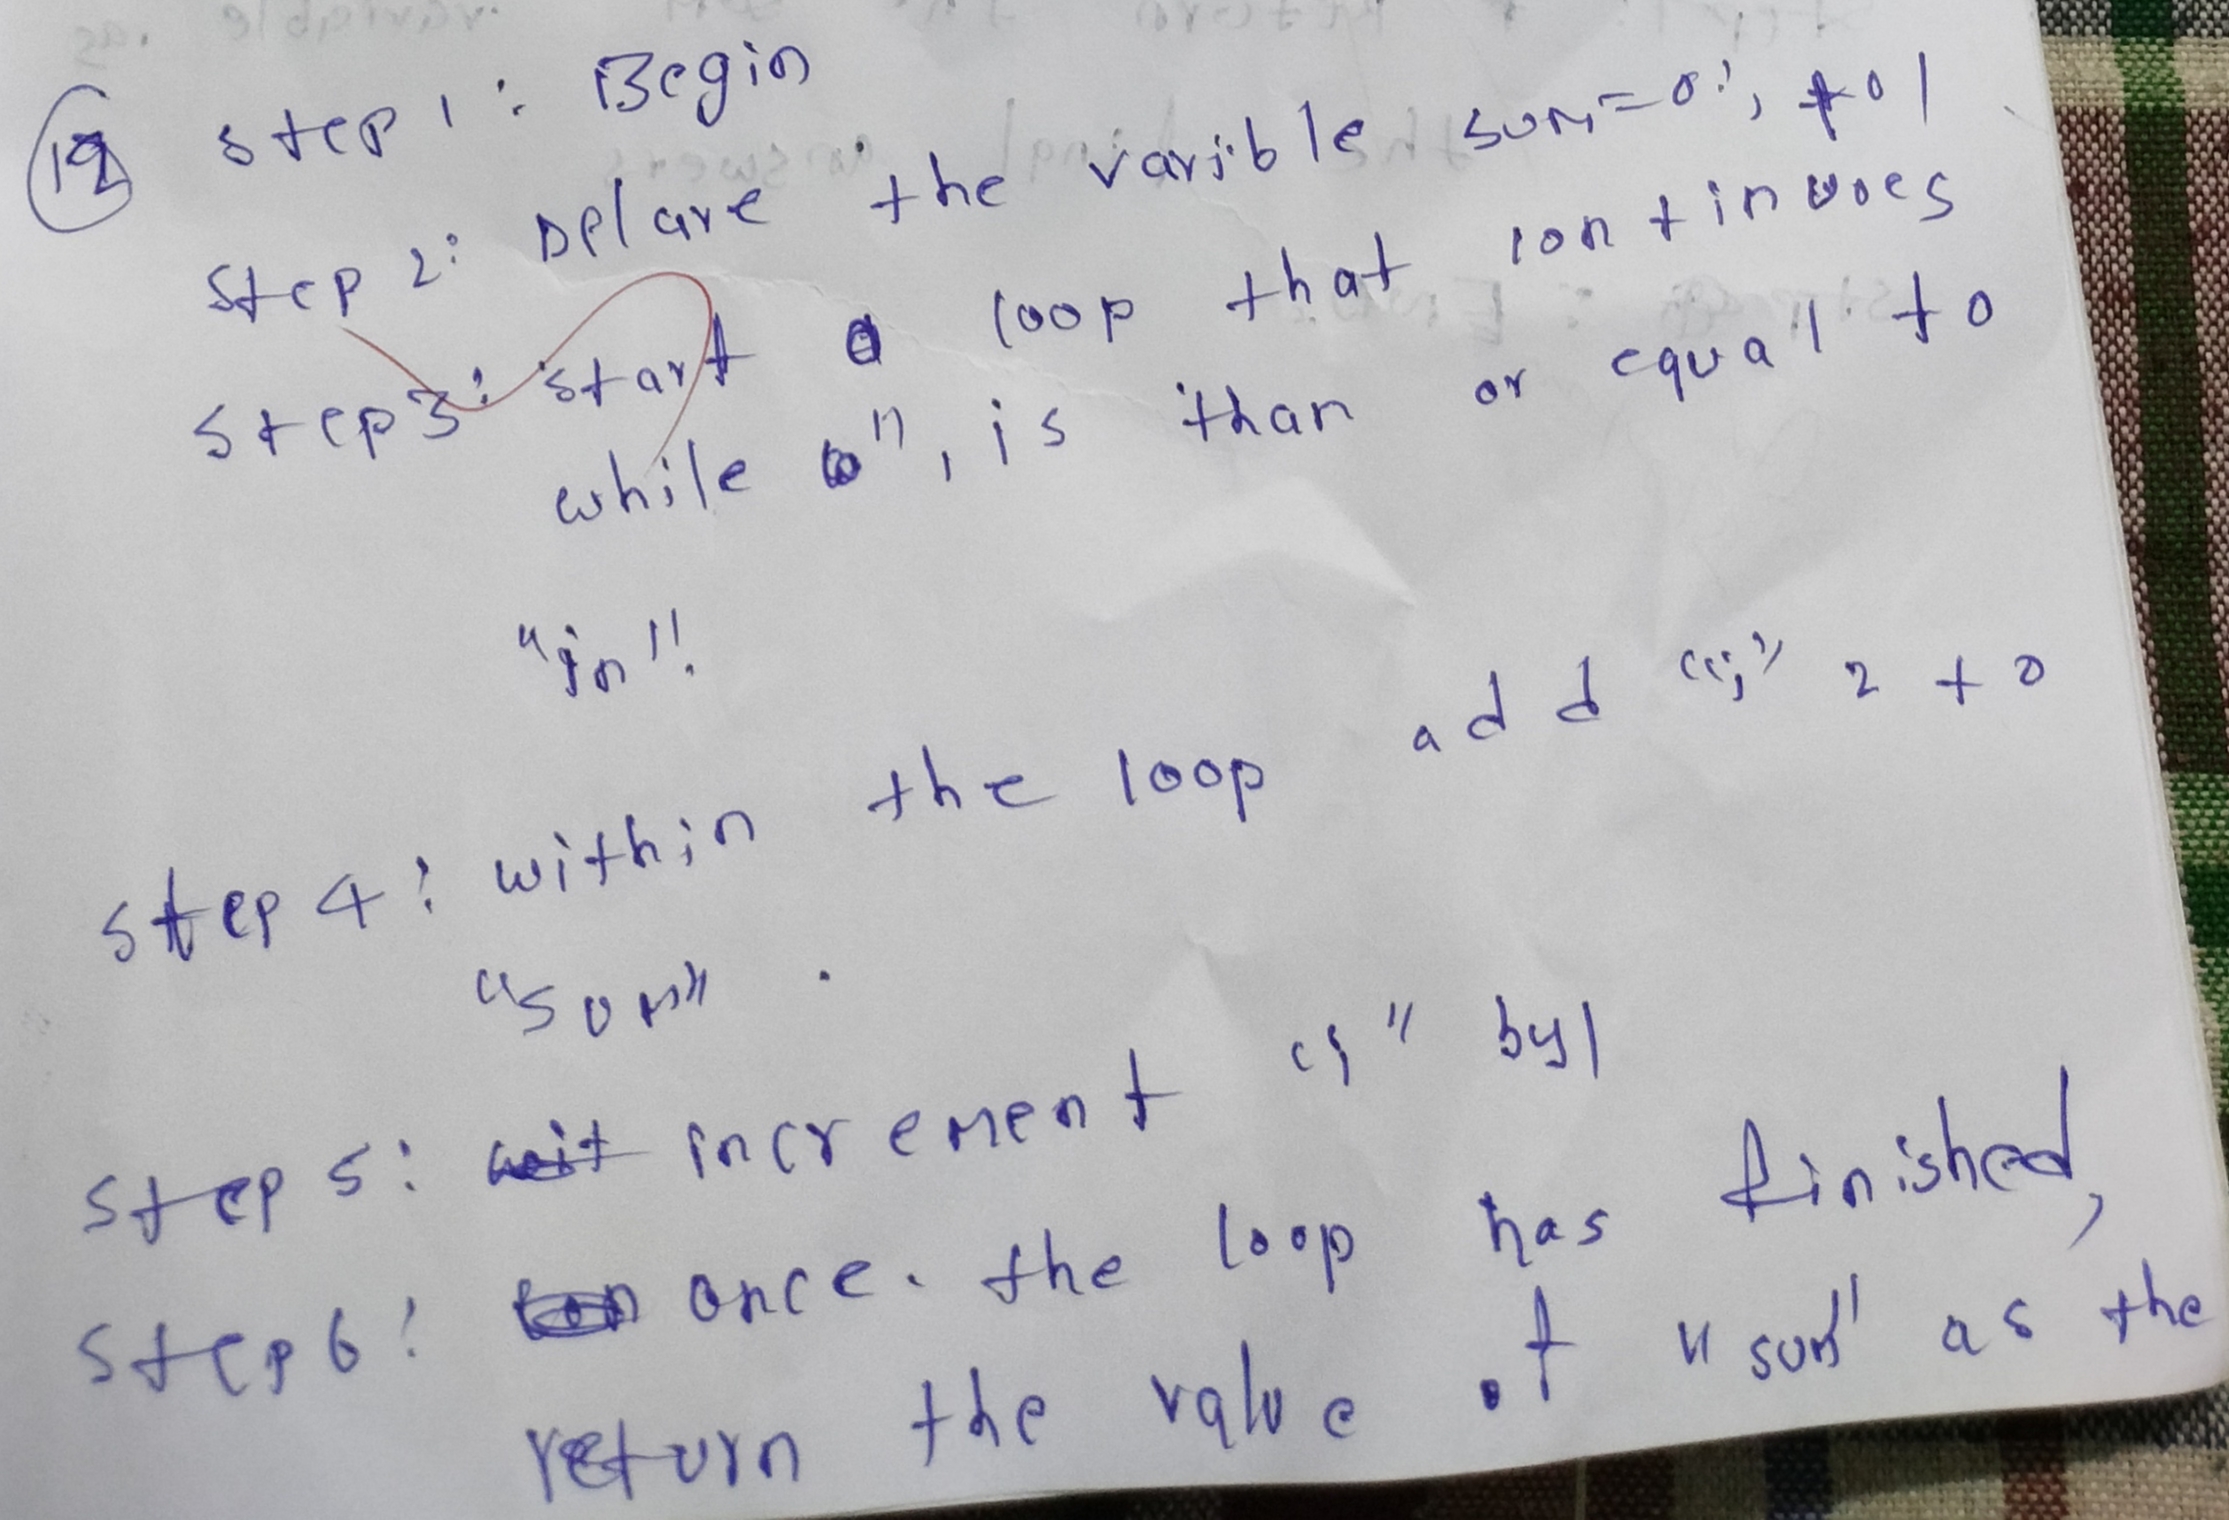 12 Step 1: Begin
Step 2: Delare the varible sum=0; to 1
Step 3: start a loop that continuoes
while ", is than or equal to
"in".
Step 4: within the loop add "i" 2 to
"sum".
Step 5: increment "i" by 1
Step 6: once. the loop has finished,
return the value of "sum" as the